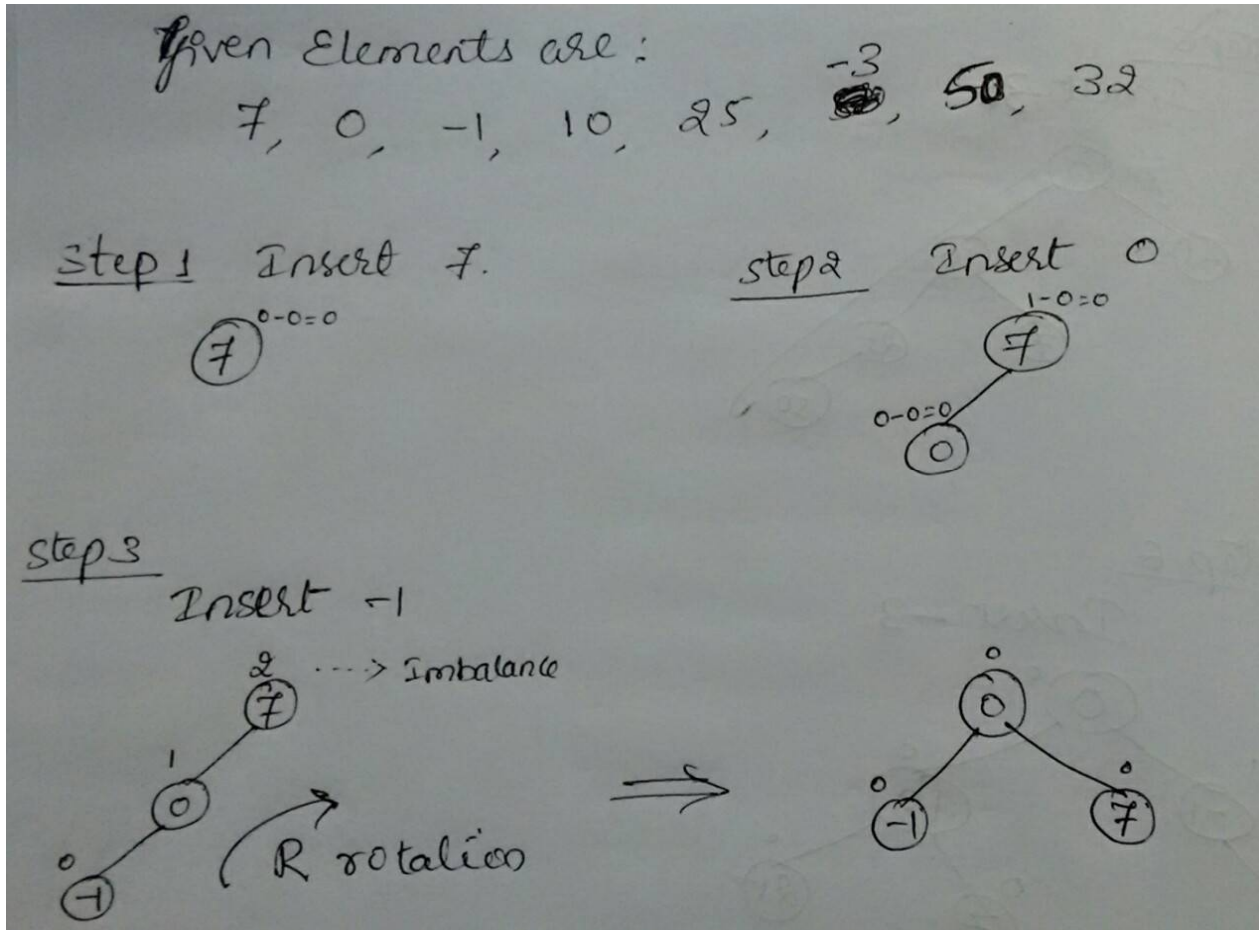 Given Elements are:
7, 0, -1, 10, 25, -3, 50, 32
Step 1 Insert 7.
0-0=0
7
Step 2 Insert 0
1-0=0
7
0-0=0
0
Step 3
Insert -1
2 ----> Imbalance
7
1
0
0
-1
R rotation
0
0
0
-1
0
7